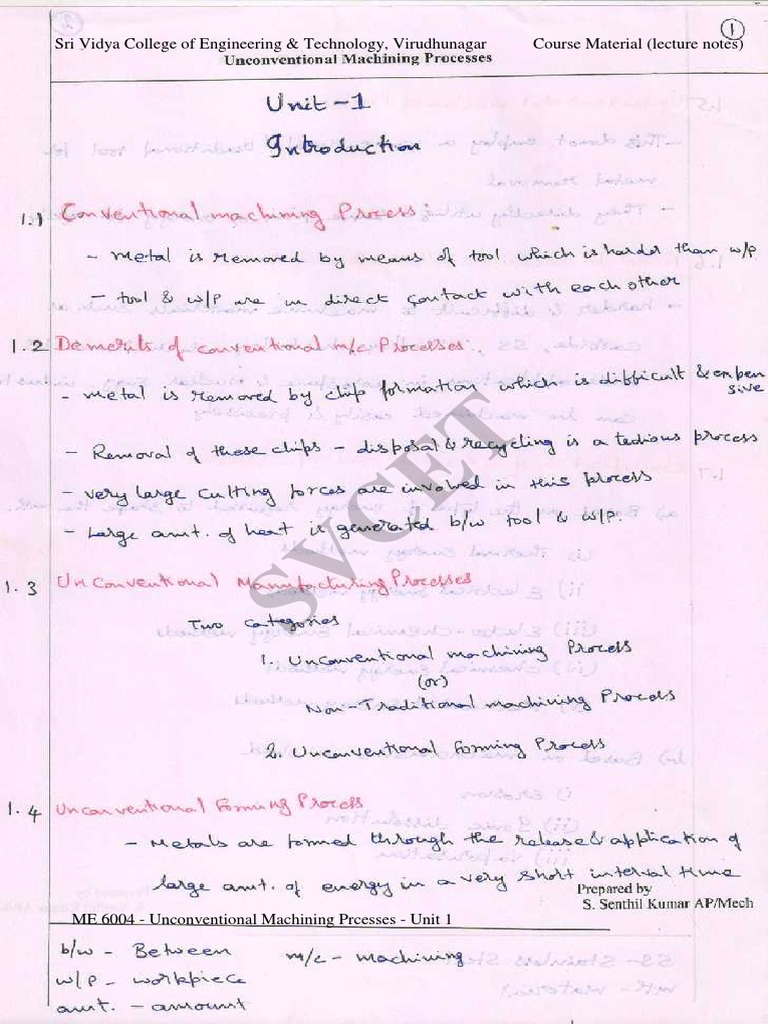 1
Sri Vidya College of Engineering & Technology, Virudhunagar Course Material (lecture notes)
Unconventional Machining Processes
Unit-1
Introduction
1.1 Conventional machining Process:
- Metal is removed by means of tool which is harder than w/p
- tool & w/p are in direct contact with each other
1.2 Demerits of conventional m/c Processes:
- Metal is removed by chip formation which is difficult & expen
sive
- Removal of these chips - disposal & recycling is a tedious process
- very large cutting forces are involved in this process
- Large amt. of heat is generated b/w tool & w/p.
SVCET
1.3 UnConventional Manufacturing Processes
Two categories
1. UnConventional machining Process
(or)
Non-Traditional machining Process
2. Unconventional Forming Process
1.4 Unconventional Forming Process
- Metals are formed through the release & application of
large amt. of energy in a very short interval time
Prepared by
S. Senthil Kumar AP/Mech
ME 6004 - Unconventional Machining Prcesses - Unit 1
b/w - Between m/c - machining
w/p - workpiece
amt. - amount